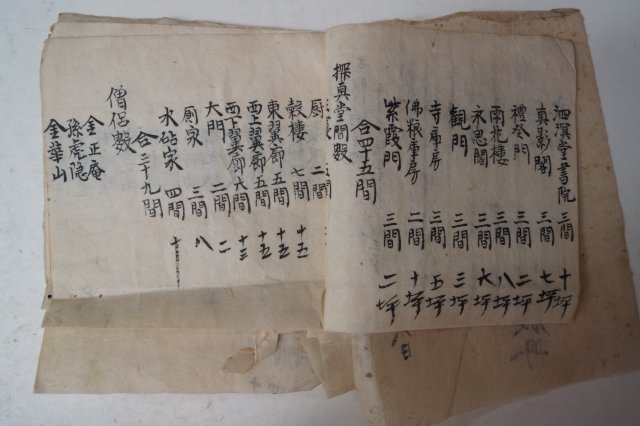 泗溟堂書院 三間 十坪
真影閣 三間 七坪
門 三間 二坪
雨花樓 三間 八坪
永思閣 三間 六坪
観門 三間 三坪
寺庫房 三間 五坪
佛粮庫房 二間 十坪
紫霞門 三間 二坪
合四十五間
探真堂間數
厨 二間
穀樓 七間 十五
東翼廊 五間 十五
西上翼廊 五間 十五
西下翼廊 六間 十三
大門 二間 二
厠家 三間 八
水砧家 四間 十
合三十九間
僧侶数
金正庵
孫虎隐
金華山